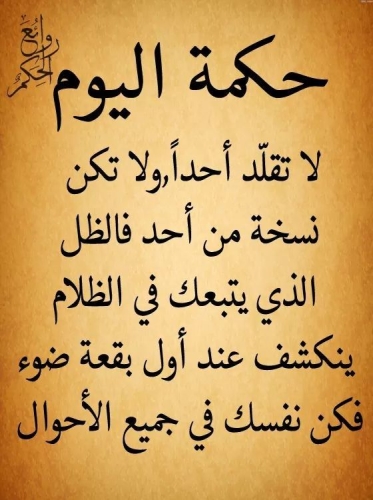 روائع
الحكم
حكمة اليوم
لا تقلّد أحداً,ولا تكن
نسخة من أحد فالظل
الذي يتبعك في الظلام
ينكشف عند أول بقعة ضوء
فكن نفسك في جميع الأحوال